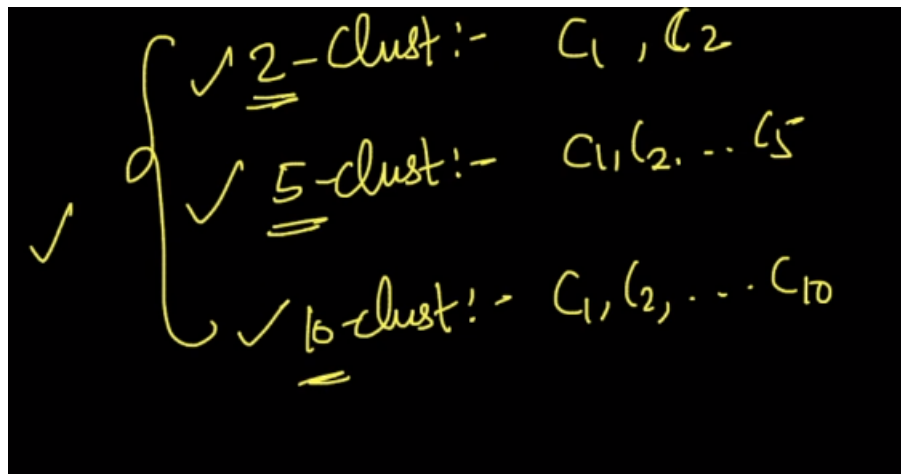 ✓ 2-Clust:- C1, C2
✓ 5-clust:- C1, C2, ... C5
✓ 10-clust:- C1, C2, .... C10